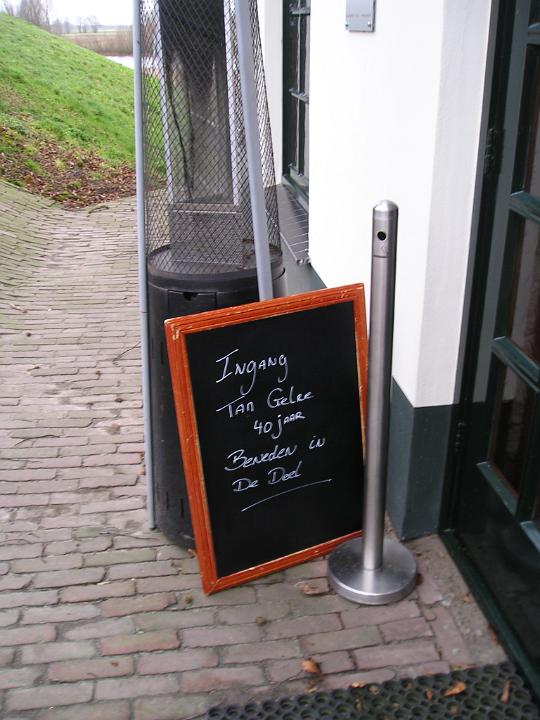 Ingang
Tan Gelre
40 jaar
Beneden in
De Deel